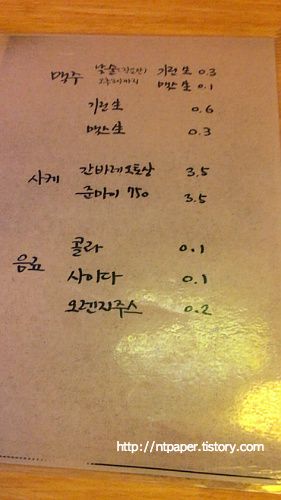 맥주 낮술 기린 生 0.3
맥스 生 0.1
기린 生 0.6
맥스 生 0.3
사케 간바레 오또상 3.5
준마이 750 3.5
음료 콜라 0.1
사이다 0.1
오렌지주스 0.2
http://ntpaper.tistory.com